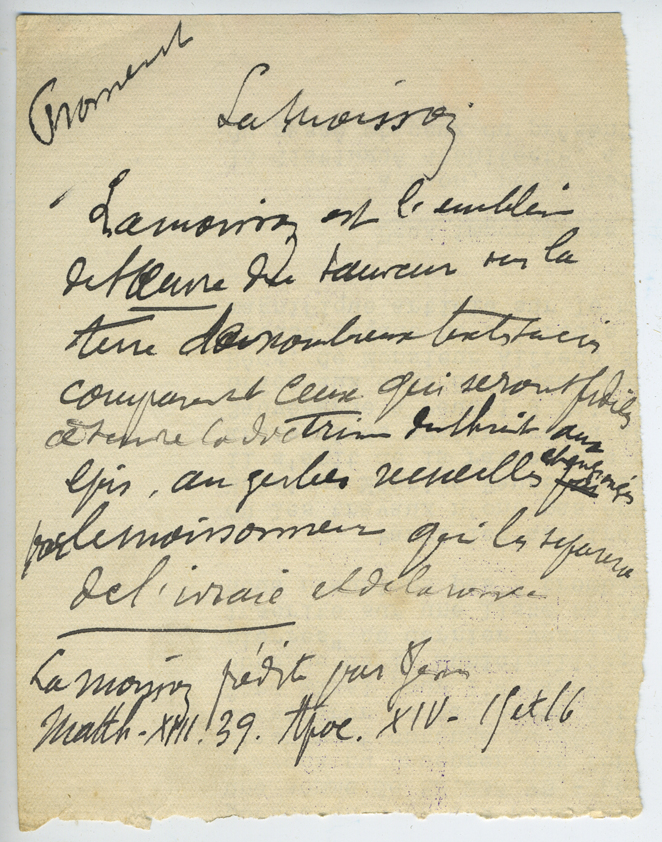 Froment
La Moisson
La moisson est l'emblème
de l'Œuvre du Sauveur sur la
terre de nombreux textes sacrés
comparent ceux qui seront fidèles
à suivre la doctrine du Christ aux
épis, aux gerbes recueillies et engrangés
par le moissonneur qui les séparera
de l'ivraie et de la ronce
La moisson prédite par Jésus
Matth - XIII. 39. Apoc. XIV - 15 et 16